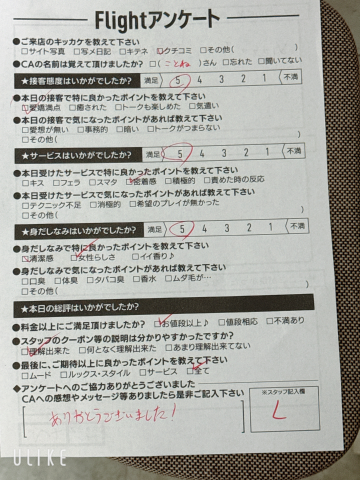 Flightアンケート
●ご来店のキッカケを教えて下さい
□サイト写真 □写メ日記 □キテネ □クチコミ □その他( )
●CAの名前は覚えて頂けましたか? □( ことね )さん □忘れた □聞いてない
★接客態度はいかがでしたか? 満足 5 4 3 2 1 不満
●本日の接客で特に良かったポイントを教えて下さい
□愛嬌満点 □癒された □トークも楽しめた □気遣い
●本日の接客で気になったポイントがあれば教えて下さい
□愛想が無い □事務的 □暗い □トークがつまらない
□その他( )
★サービスはいかがでしたか? 満足 5 4 3 2 1 不満
●本日受けたサービスで特に良かったポイントを教えて下さい
□キス □フェラ □スマタ □密着感 □積極的 □責めた時の反応
●本日受けたサービスで気になったポイントがあれば教えて下さい
□テクニック不足 □消極的 □希望のプレイが無かった
□その他( )
★身だしなみはいかがでしたか? 満足 5 4 3 2 1 不満
●身だしなみで特に良かったポイントを教えて下さい
□清潔感 □女性らしさ □イイ香り♪
●身だしなみで気になったポイントがあれば教えて下さい
□口臭 □体臭 □タバコ臭 □香水 □ムダ毛が…
□その他( )
★本日の総評はいかがでしたか?
●料金以上にご満足頂けましたか? □お値段以上♪ □値段相応 □不満あり
●スタッフのクーポン等の説明は分かりやすかったですか?
□理解出来た □何となく理解出来た □あまり理解出来てない
●最後に、ご期待以上に良かったポイントを教えて下さい
□ムード □ルックス・スタイル □サービス □全て
●アンケートへのご協力ありがとうございました
CAへの感想やメッセージ等ありましたら是非ご記入下さい
ありがとうございました!
※スタッフ記入欄
L
ULIKE